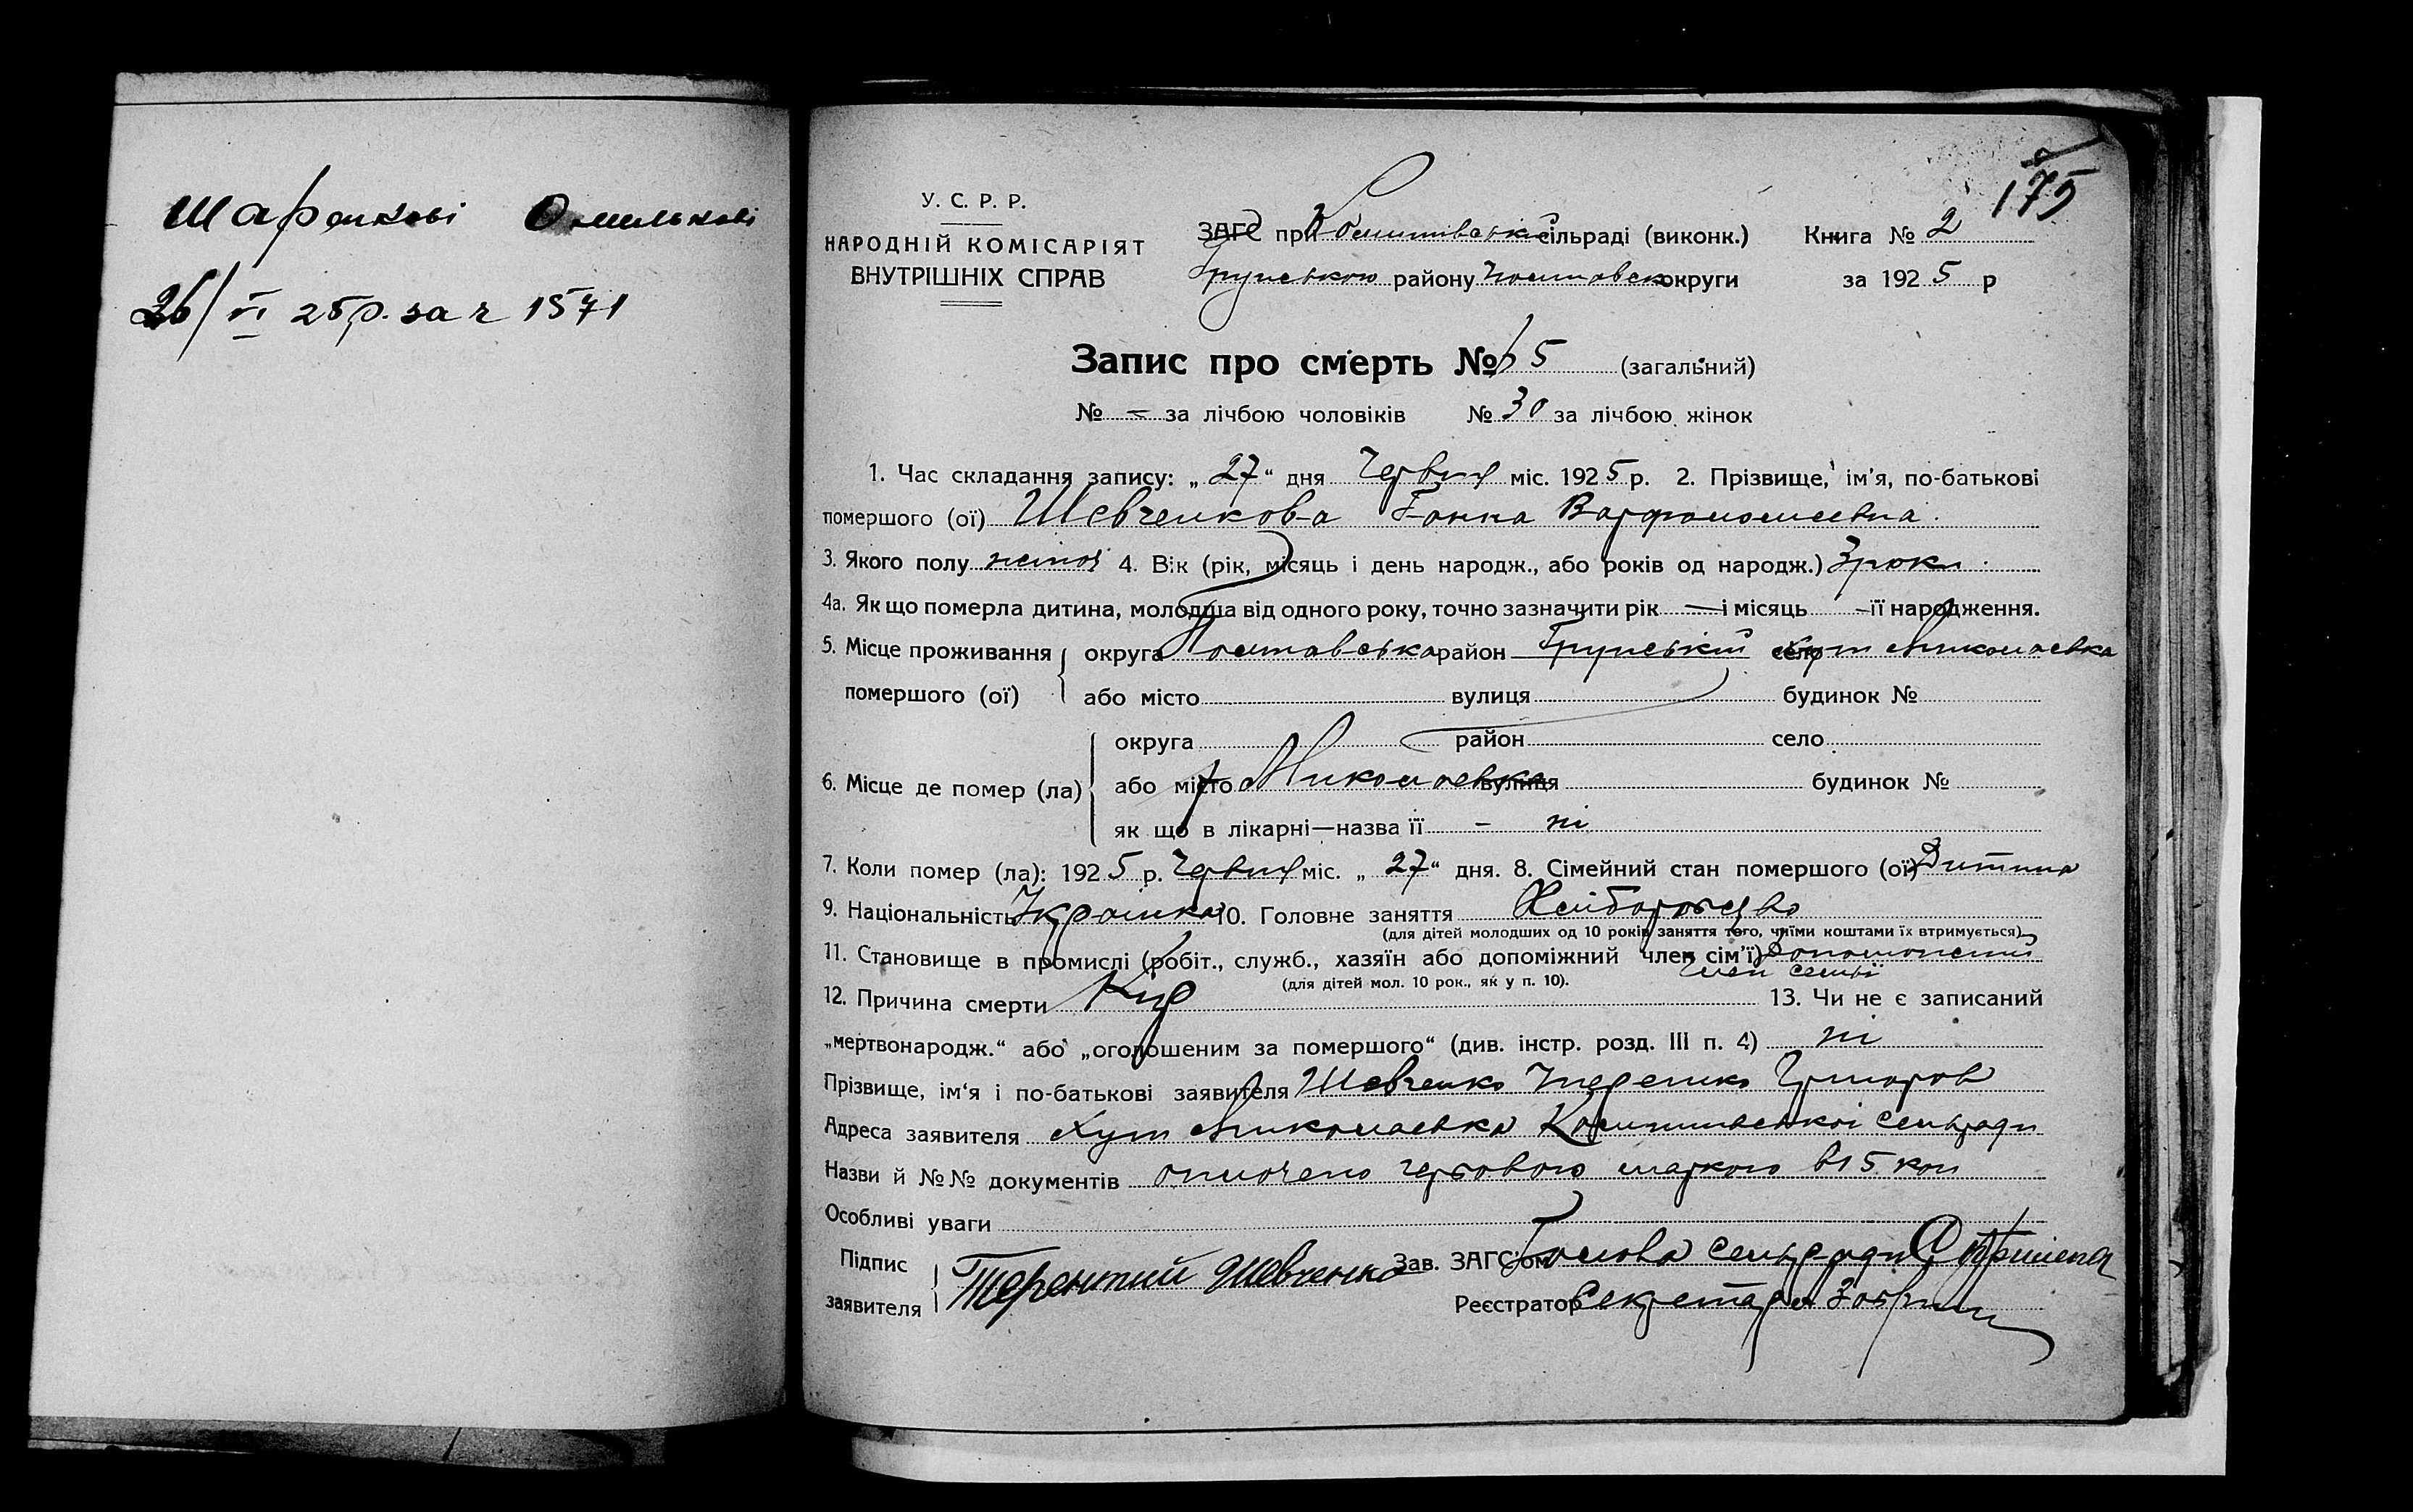 Шаренкові Омелькові
26/VI 25р. за ч 1571
175
У. С. Р. Р.
НАРОДНІЙ КОМІСАРІЯТ
ВНУТРІШНІХ СПРАВ
ЗАГС при сільраді (виконк.) Книга № 2
Грунського району Полтавськ округи за 1925 р
Запис про смерть № 5 (загальний)
№ — за лічбою чоловіків № 30 за лічбою жінок
1. Час складання запису: „27“ дня Червня міс. 1925 р. 2. Прізвище, ім'я, по-батькові
помершого (ої) Шевченкова Ганна Варфоломеевна
3. Якого полу жіноч 4. Вік (рік, місяць і день народж., або років од народж.) 3 роки
4а. Як що померла дитина, молодша від одного року, точно зазначити рік — і місяць — її народження.
5. Місце проживання помершого (ої) округа Полтавська район Грунський село хут Миколаевка
або місто вулиця будинок №
6. Місце де помер (ла) округа район село
або місто Миколаевка вулиця будинок №
як що в лікарні—назва її — ні
7. Коли помер (ла): 1925 р. Червня міс. „27“ дня. 8. Сімейний стан помершого (ої) Дитина
9. Національність Українка 10. Головне заняття Хліборобство
(для дітей молодших од 10 років заняття того, чиїми коштами їх втримується)
11. Становище в промислі (робіт., служб., хазяїн або допоміжний член сім'ї) допоможний
член семьі
(для дітей мол. 10 рок., як у п. 10).
12. Причина смерти Кір 13. Чи не є записаний
„мертвонародж.“ або „оголошеним за помершого“ (див. інстр. розд. III п. 4) ні
Прізвище, ім'я і по-батькові заявителя Шевченко Терешко Григоров
Адреса заявителя хут Миколаевка сельради
Назви й №№ документів оплочено маркою в 15 коп
Особливі уваги
Підпис заявителя Терентий Шевченко Зав. ЗАГС'ом Голова сельради
Реєстратор Секретарь